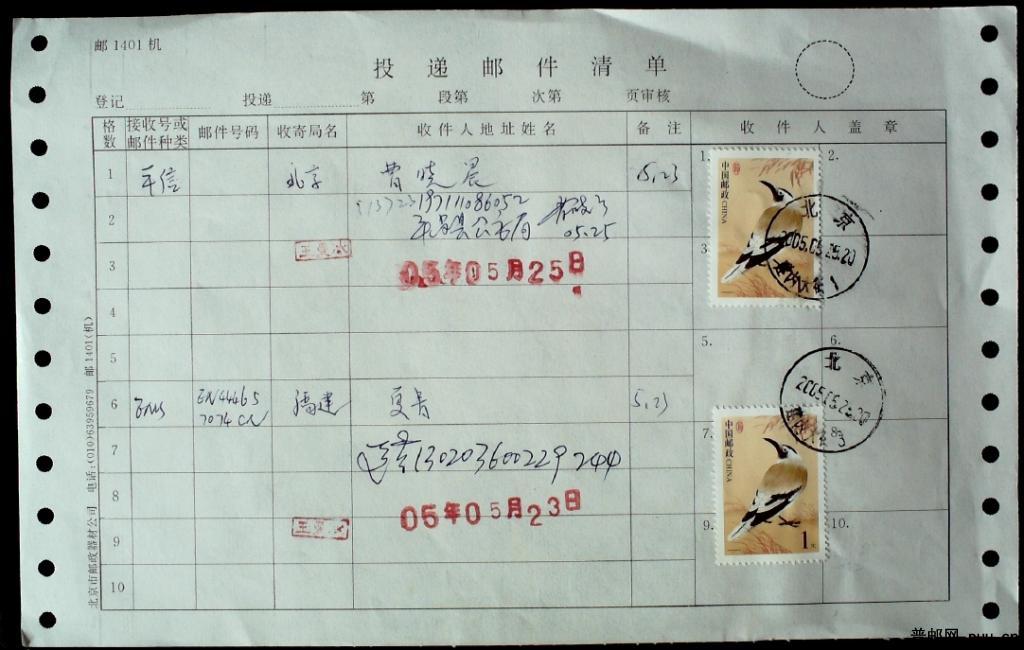 邮1401机
投递邮件清单
登记 投递 第 段第 次第 页审核
格数 接收号或邮件种类 邮件号码 收寄局名 收件人地址姓名 备注 收件人盖章
1 平信 北京 曹晓晨 5.23 1. 2.
中国邮政 CHINA
2 19711086052
05.25
北京
2005.05.25.20
3 3.
05年05月25日
4
5 5. 6.
北京
6 EMS EN44465 7074CN 福建 夏青 5.23
7 130203600229744 7. 8.
中国邮政 CHINA
8
05年05月23日
9 9. 10.
1元
10
北京市邮政器材公司 电话:(010)63959679 邮1401(机)
普邮网 puu.cn